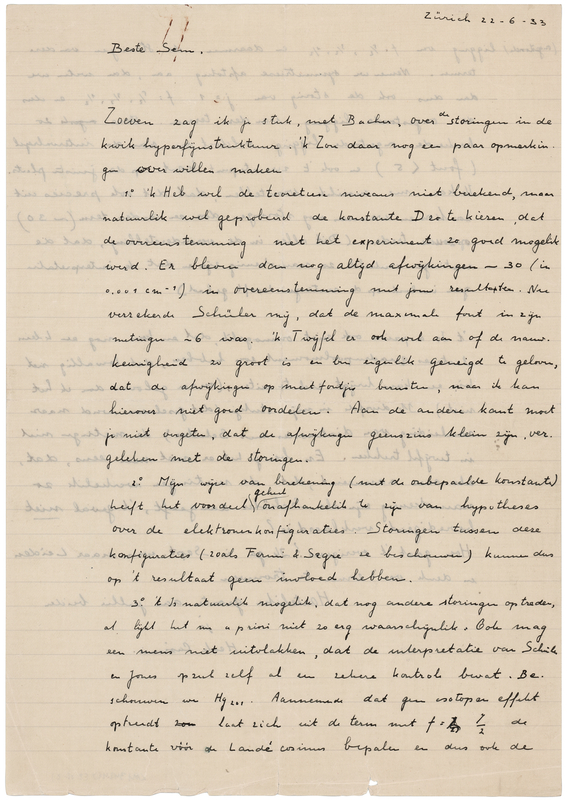 Zürich 22-6-33
Beste Sem.
Zoeven zag ik je stuk, met Bacher, over de storingen in de
kwik hyperfijnstruktuur. 'k Zou daar nog een paar opmerkin
gen over willen maken
1° 'k Heb wel de teoretiese niveaus niet berekend, maar
natuurlik wel geprobeerd de konstante D zo te kiezen, dat
de overeenstemming met het experiment zo goed mogelik
werd. Er bleven dan nog altijd afwijkingen ~ 30 (in
0.001 cm⁻¹) in overeenstemming met jouw resultaten. Nu
verzekerde Schüler mij, dat de maximale fout in zijn
metingen ~6 was. 'k Twijfel er ook wel aan of de nauw-
keurigheid zo groot is en ben eigenlik geneigd te geloven,
dat de afwijkingen op meetfoutjes berusten, maar ik kan
hierover niet goed oordelen. Aan de andere kant moet
je niet vergeten, dat de afwijkingen geenszins klein zijn, ver-
geleken met de storingen.
2° Mijn wijze van berekening (met de onbepaalde konstante)
heeft het voordeel geheel onafhankelik te zijn van hypotheses
over de elektronenkonfiguraties. Storingen tussen deze
konfiguraties (zoals Fermi & Segre ze beschouwen) kunnen dus
op 't resultaat geen invloed hebben.
3° 't Is natuurlik mogelik, dat nog andere storingen optreden,
al lijkt het me a priori niet zo erg waarschijnlik. Ook mag
een mens niet uitvlakken, dat de interpretatie van Schüler
en Jones zelf al een zekere kontrole bevat. Be-
schouwen we Hg₂₀₁. Aannemende dat geen isotopen effekt
optreedt laat zich uit de term met f = 7/2 de
konstante vóór de Landé cosinus bepalen en dus ook de